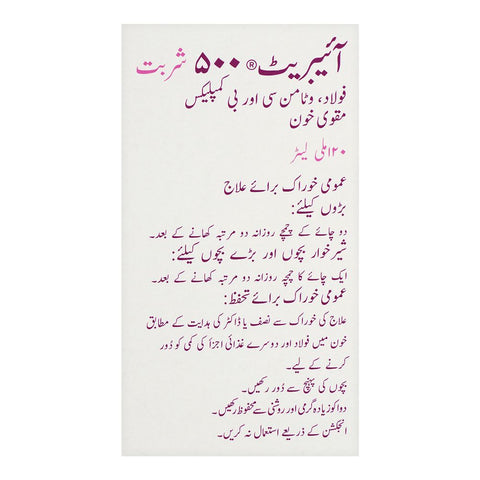 آئیبریٹ® ۵۰۰ شربت
فولاد، وٹامن سی اور بی کمپلیکس
مقوی خون
۱۲۰ملی لیٹر
عمومی خوراک برائے علاج
بڑوں کیلئے:
دو چائے کے چمچے روزانہ دو مرتبہ کھانے کے بعد۔
شیرخوار بچوں اور بڑے بچوں کیلئے:
ایک چائے کا چمچہ روزانہ دو مرتبہ کھانے کے بعد۔
عمومی خوراک برائے تحفظ:
علاج کی خوراک سے نصف یا ڈاکٹر کی ہدایت کے مطابق
خون میں فولاد اور دوسرے غذائی اجزأ کی کمی کو دُور
کرنے کے لیے۔
بچوں کی پہنچ سے دُور رکھیں۔
دوا کو زیادہ گرمی اور روشنی سے محفوظ رکھیں۔
انجکشن کے ذریعے استعمال نہ کریں۔